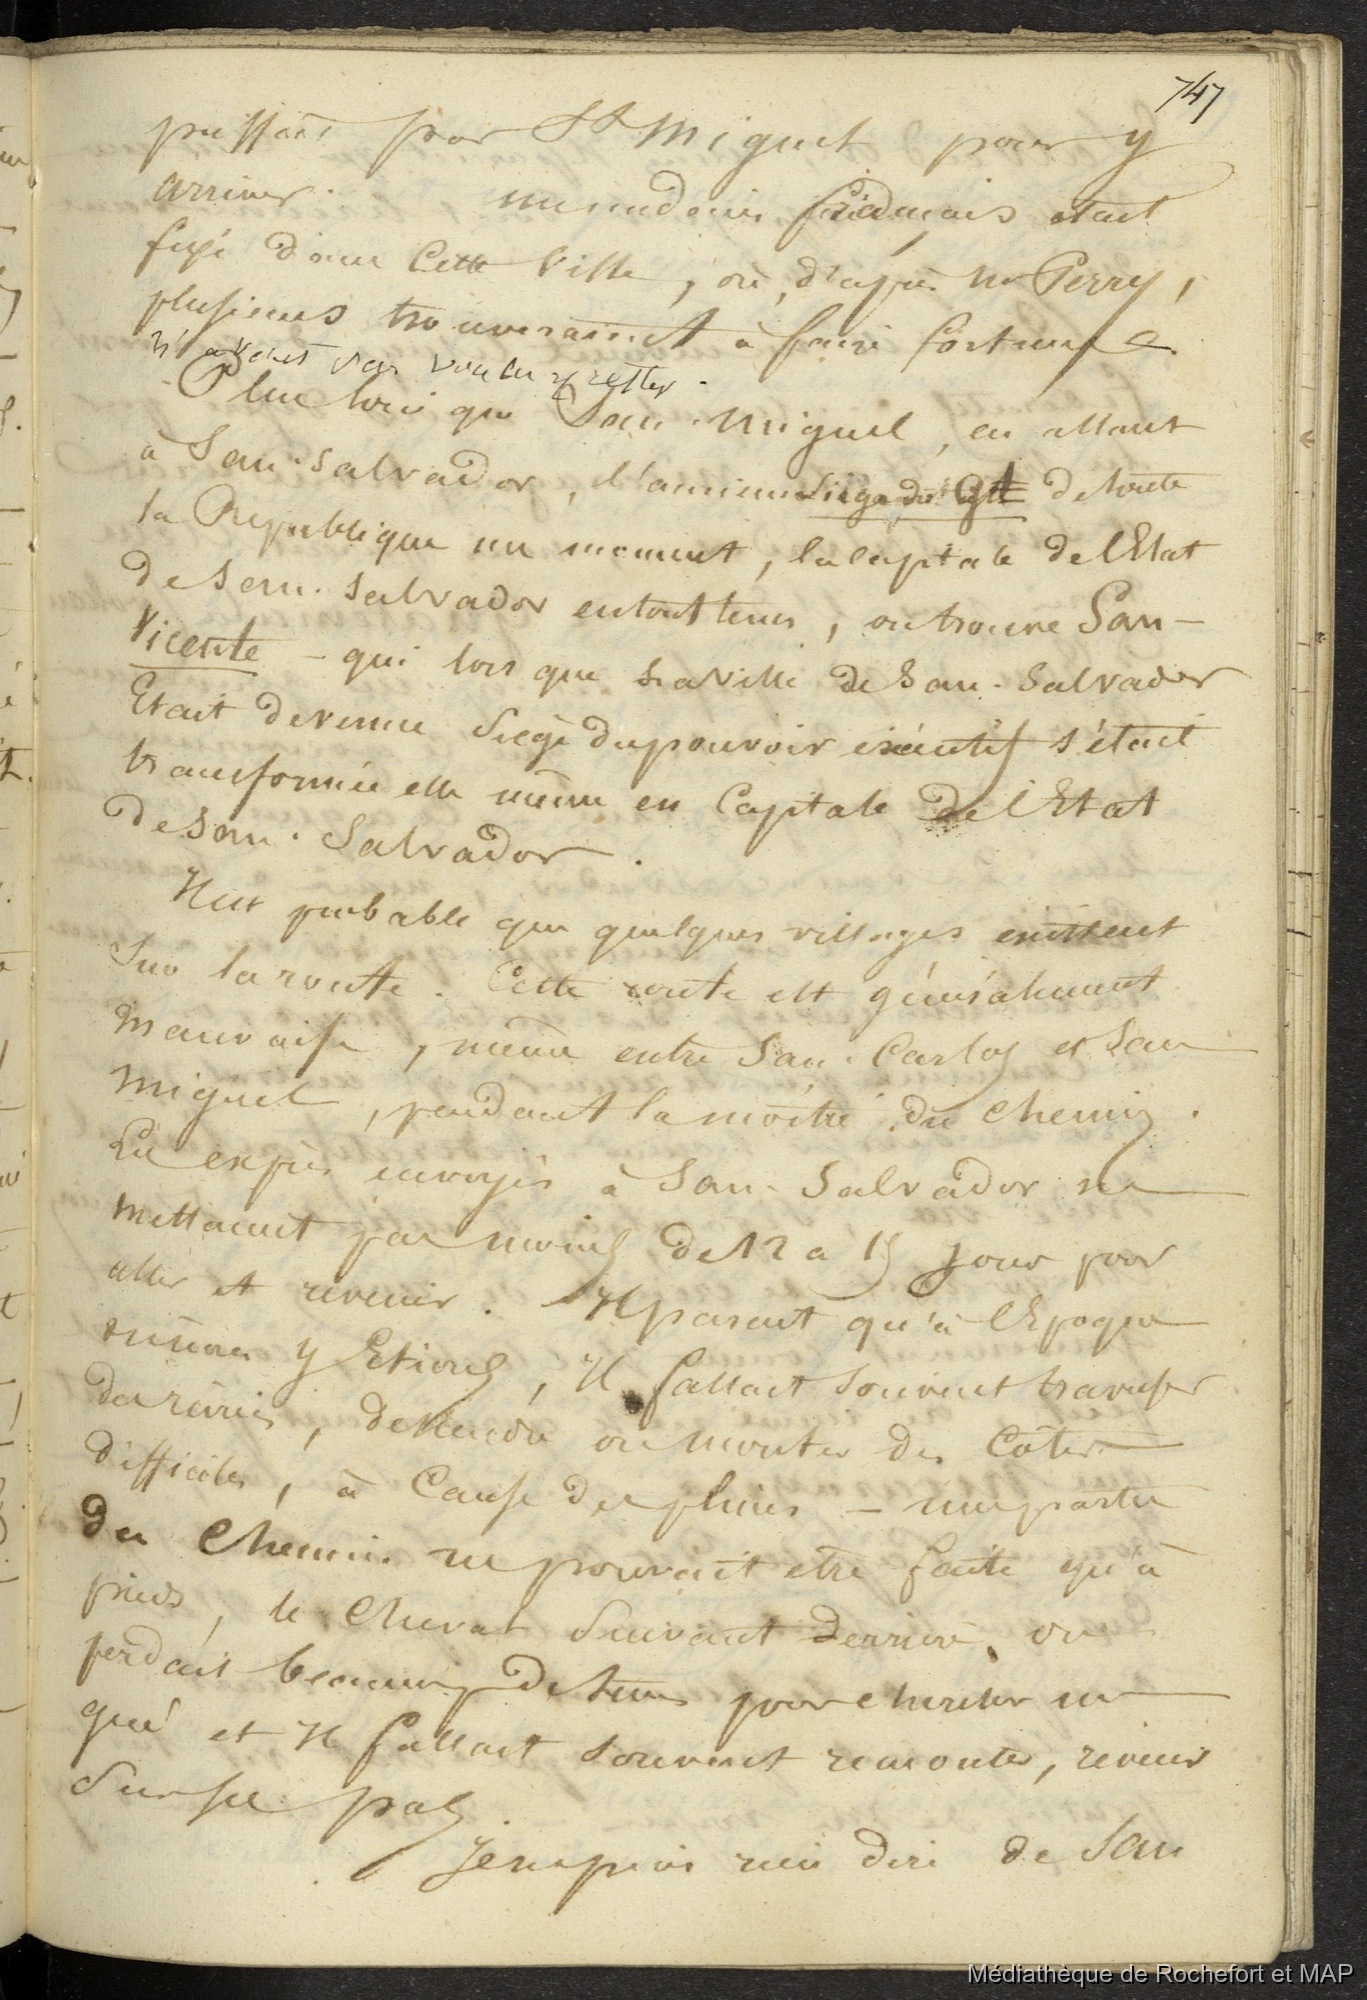 747
par St Miguel pour y
arriver. un medecin français etait
fixé dans cette ville, où, d'après Mr Perry,
plusieurs trouveraient à faire fortune
n'avait pas voulu y rester.
Plus loin que San-Miguel, en allant
à San-Salvador, l'ancien siège du Gt de toute
la Republique un moment, la capitale de l'Etat
de San-Salvador en tout tems, on trouve San-
Vicente - qui lorsque la ville de San-Salvador
Etait devenue siège du pouvoir exécutif s'était
transformée elle même en Capitale de l'Etat
de San-Salvador.
Il est probable que quelques villages existent
sur la route. Cette route est généralement
mauvaise, même entre San-Carlos et San
Miguel, pendant la moitié du chemin.
Les exprès envoyés à San-Salvador ne
mettaient pas moins de 12 a 15 jours pour
aller et revenir. Il parait qu'à l'Epoque
où nous y Etions, Il fallait souvent traverser
des rivières, descendre ou monter des Côtes
difficiles, à cause des pluies - une partie
du chemin ne pouvait etre faite qu'à
pieds, le cheval suivant derrière, on
perdait beaucoup de tems pour chercher un
gué et Il fallait souvent remonter, revenir
sur ses pas.
Je ne puis rien dire de San
Médiathèque de Rochefort et MAP